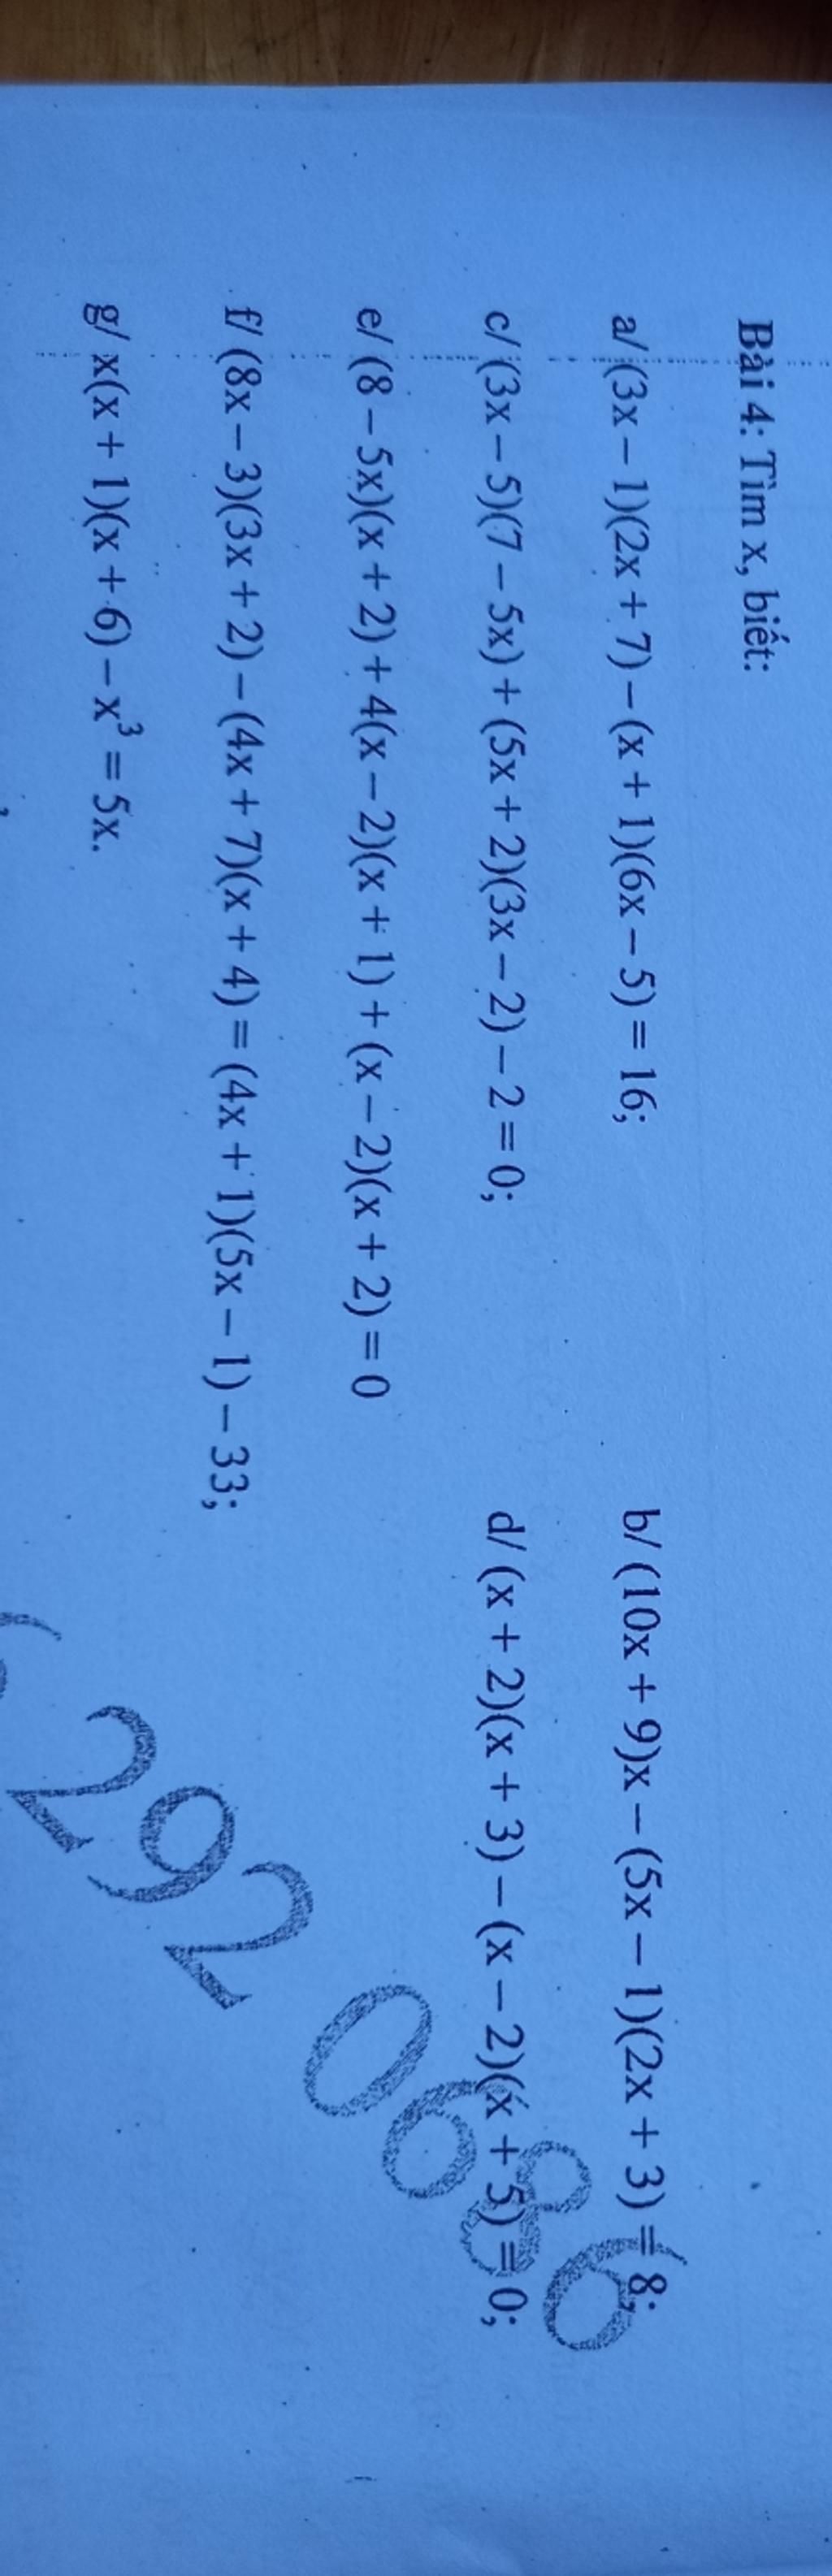 Bài 4: Tìm x, biết:
a/ (3x – 1)(2x + 7) – (x + 1)(6x – 5) = 16; b/ (10x + 9)x – (5x – 1)(2x + 3) = 8;
c/ (3x – 5)(7 – 5x) + (5x + 2)(3x – 2) – 2 = 0; d/ (x + 2)(x + 3) – (x – 2)(x + 5) = 0;
e/ (8 – 5x)(x + 2) + 4(x – 2)(x + 1) + (x – 2)(x + 2) = 0
f/ (8x – 3)(3x + 2) – (4x + 7)(x + 4) = (4x + 1)(5x – 1) – 33;
g/ x(x + 1)(x + 6) – x³ = 5x.
292 0686